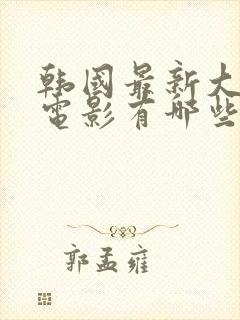 韩国最新大
电影有哪些
郭孟雍